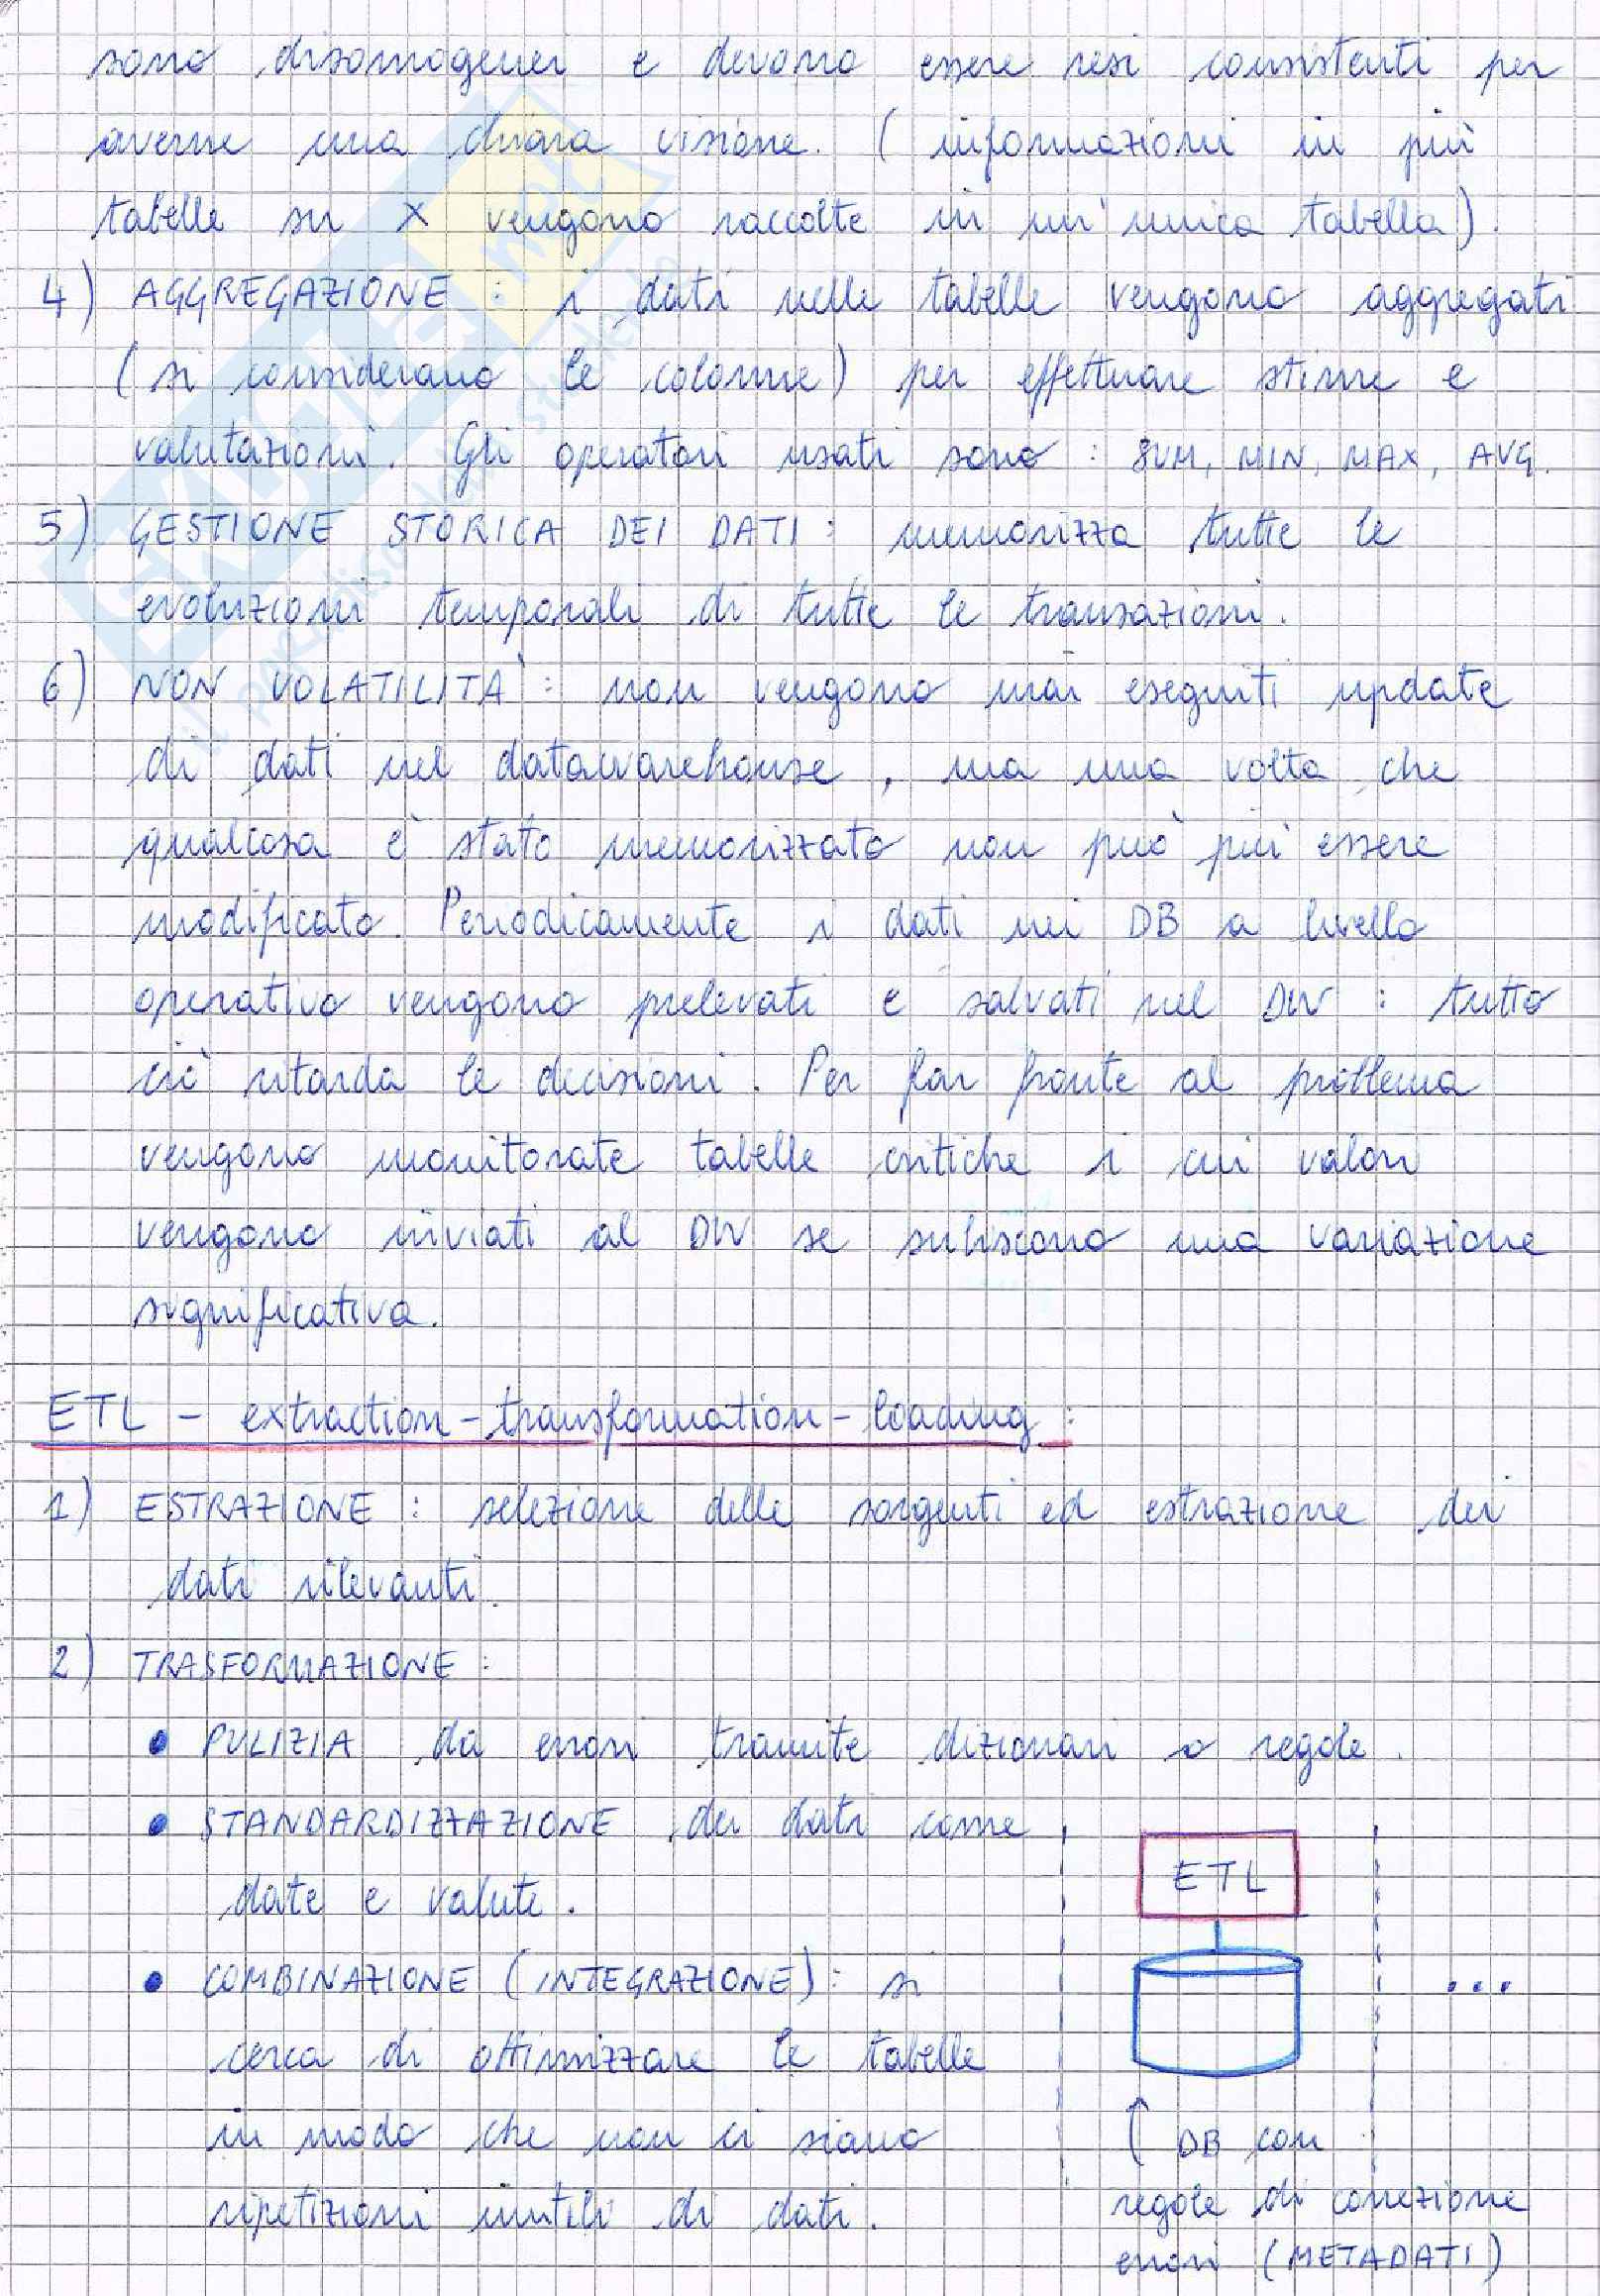 sono disomogenei e devono essere resi consistenti per
averne una chiara visione. (informazioni in più
tabelle su X vengono raccolte in un'unica tabella).
4) AGGREGAZIONE : i dati nelle tabelle vengono aggregati
(si considerano le colonne) per effettuare stime e
valutazioni. Gli operatori usati sono : SUM, MIN, MAX, AVG.
5) GESTIONE STORICA DEI DATI : memorizza tutte le
evoluzioni temporali di tutte le transazioni.
6) NON VOLATILITÀ : non vengono mai eseguiti update
di dati nel datawarehouse, ma una volta che
qualcosa è stato memorizzato non può più essere
modificato. Periodicamente i dati nei DB a livello
operativo vengono prelevati e salvati nel DW : tutto
ciò ritarda le decisioni. Per far fronte al problema
vengono monitorate tabelle critiche i cui valori
vengono inviati al DW se subiscono una variazione
significativa.
ETL - extraction-transformation-loading :
1) ESTRAZIONE : selezione delle sorgenti ed estrazione dei
dati rilevanti.
2) TRASFORMAZIONE :
• PULIZIA da errori tramite dizionari o regole.
• STANDARDIZZAZIONE dei dati come
date e valute.
• COMBINAZIONE (INTEGRAZIONE) : si
cerca di ottimizzare le tabelle
in modo che non ci siano
ripetizioni inutili di dati.
ETL
...
↑ DB con
regole di correzione
errori (METADATI)
SKUOLA.net